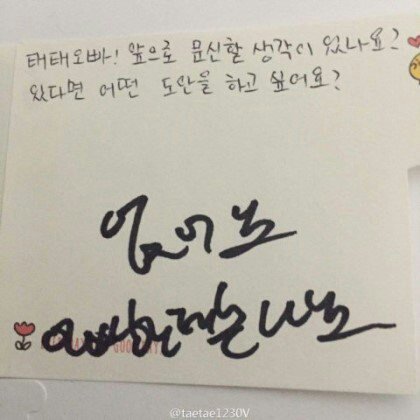 태태오빠! 앞으로 문신할 생각이 있나요?
있다면 어떤 도안을 하고 싶어요?
없어요
@taetae1230V